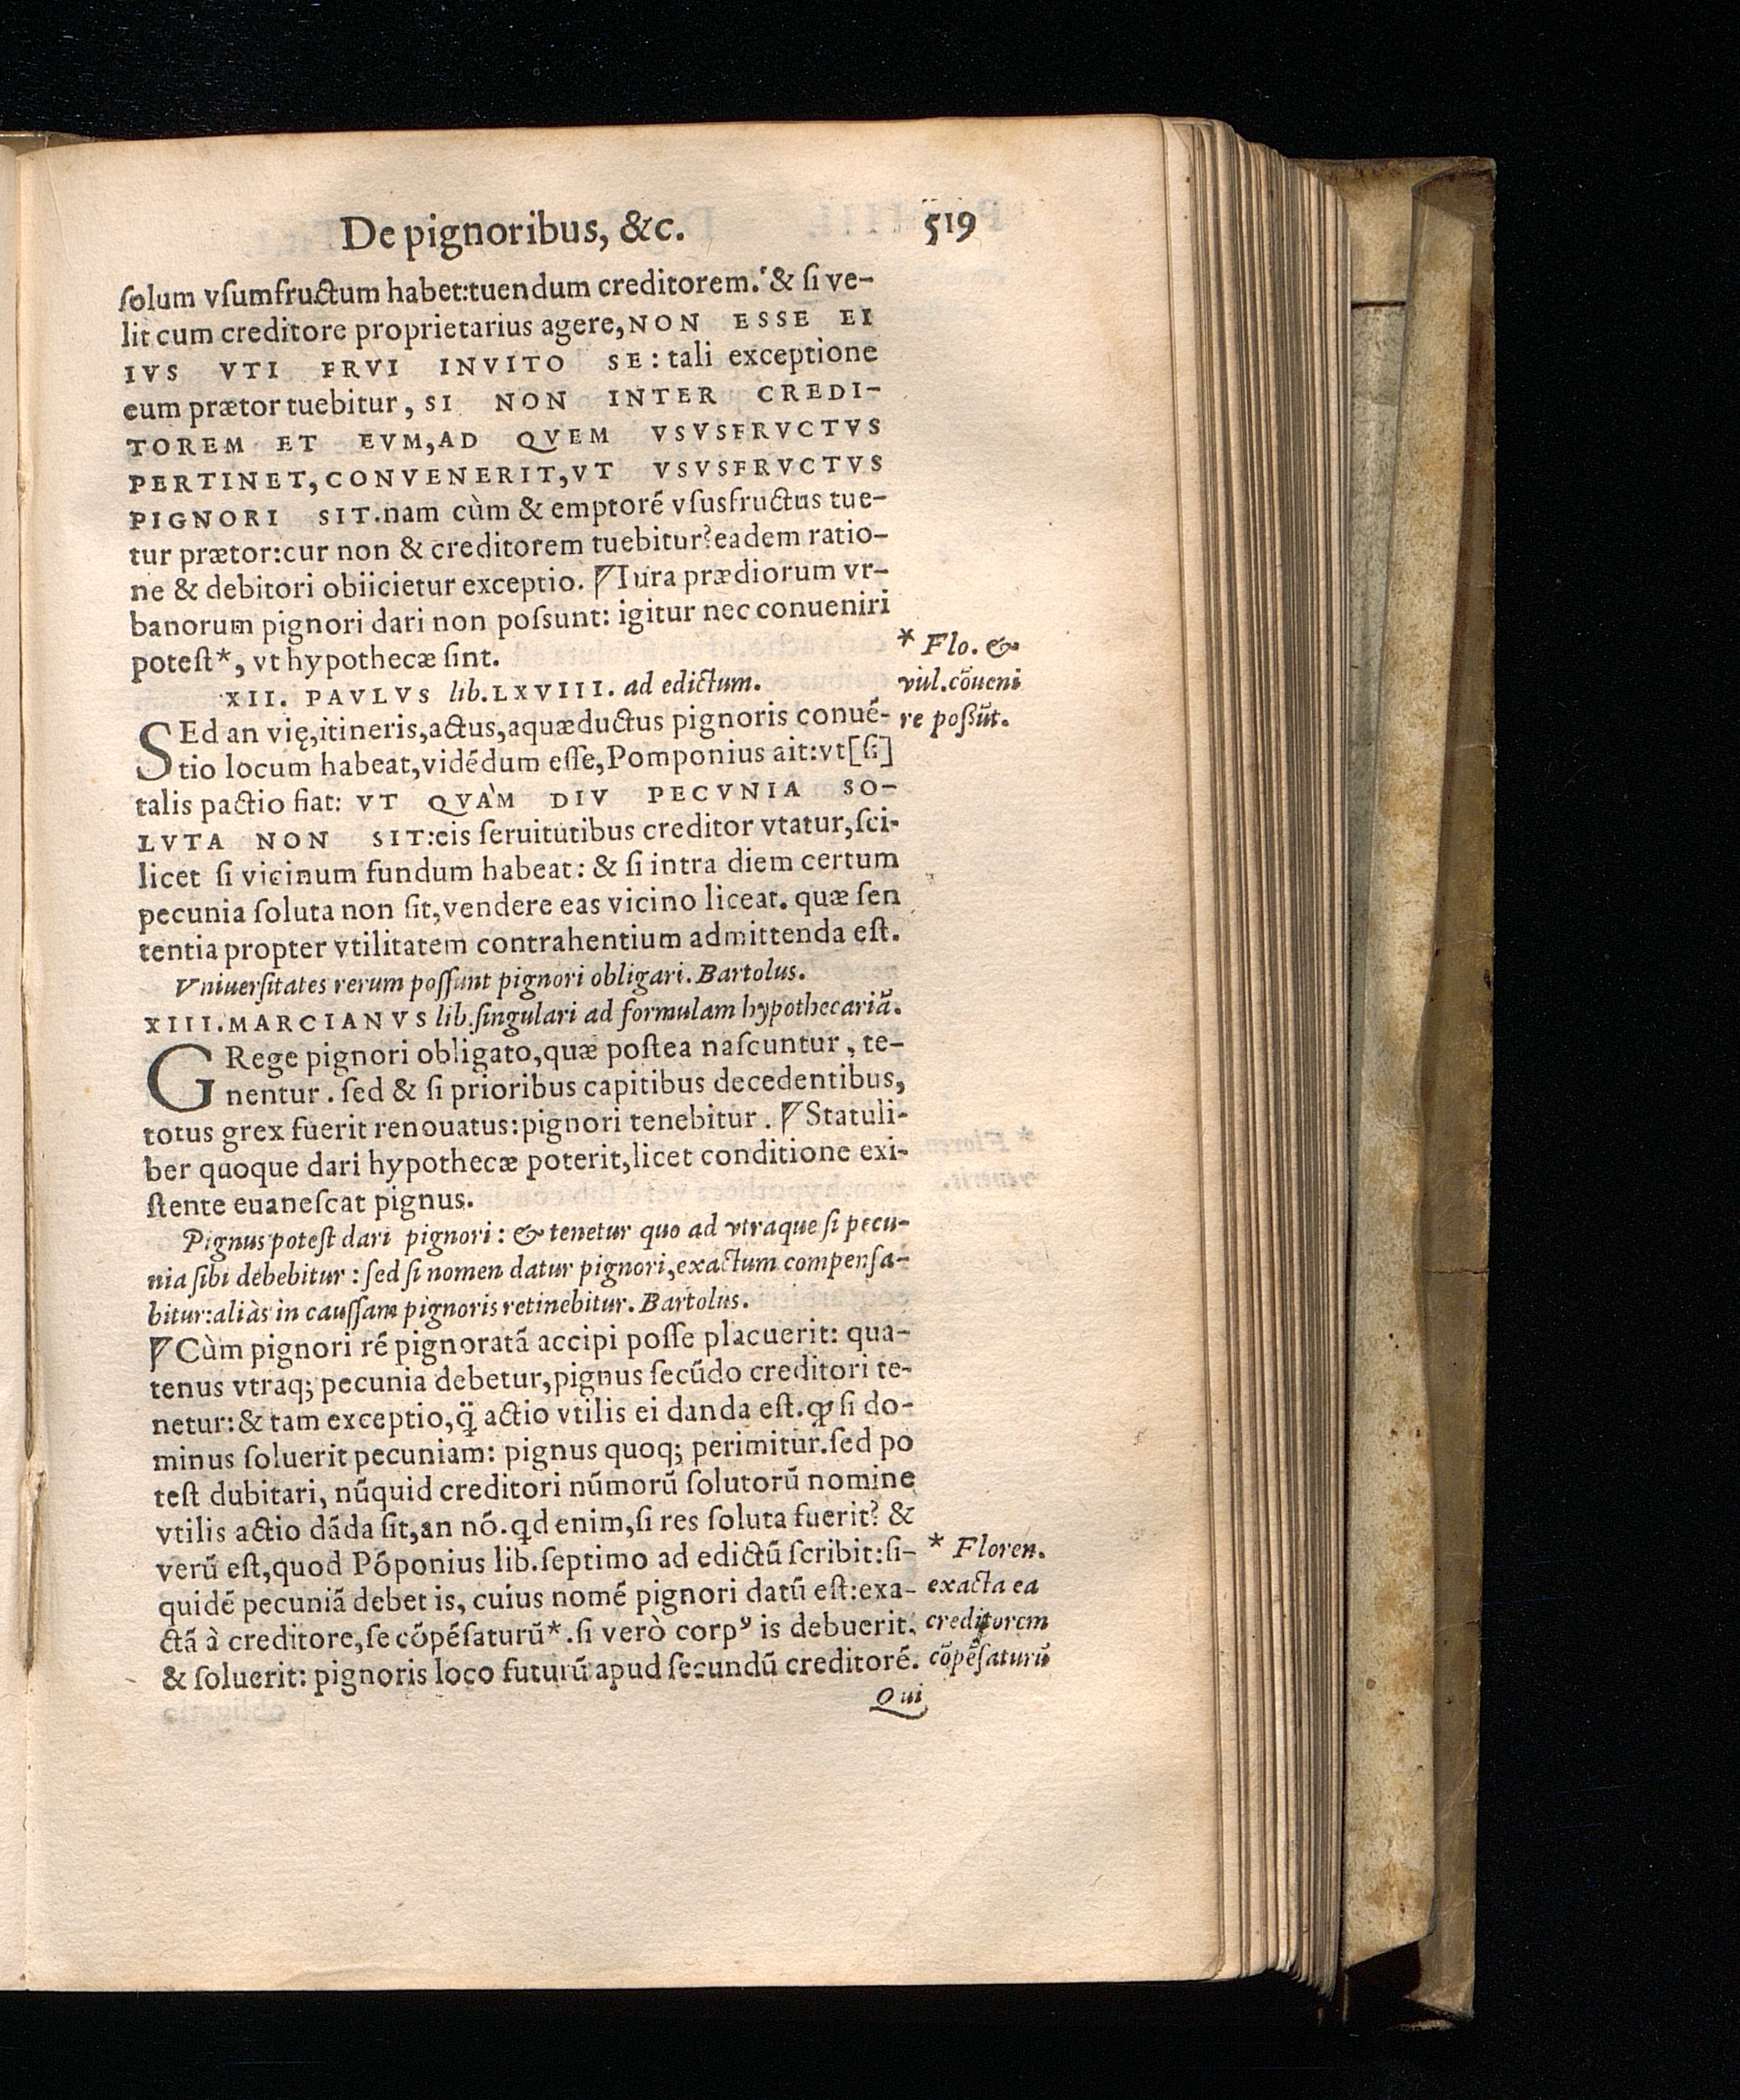 De pignoribus, &c. 519
ſolum vſumfructum habet:tuendum creditorem. & ſi ve-
lit cum creditore proprietarius agere, NON ESSE EI
IVS VTI FRVI INVITO SE: tali exceptione
eum prætor tuebitur, SI NON INTER CREDI-
TOREM ET EVM, AD QVEM VSVSFRVCTVS
PERTINET, CONVENERIT, VT VSVSFRVCTVS
PIGNORI SIT. nam cùm & emptorē vſusfructus tue-
tur prætor:cur non & creditorem tuebitur? eadem ratio-
ne & debitori obiicietur exceptio. ¶ Iura prædiorum vr-
banorum pignori dari non poſsunt: igitur nec conueniri
poteſt*, vt hypothecæ ſint.
* Flo. &
vul. cōueni
re poßūt.
XII. PAVLVS lib. LXVIII. ad edictum.
SEd an vię, itineris, actus, aquæductus pignoris conuē-
tio locum habeat, vidēdum eſſe, Pomponius ait: vt [ſi]
talis pactio fiat: VT QVAM DIV PECVNIA SO-
LVTA NON SIT: eis ſeruitutibus creditor vtatur, ſci-
licet ſi vicinum fundum habeat: & ſi intra diem certum
pecunia ſoluta non ſit, vendere eas vicino liceat. quæ ſen
tentia propter vtilitatem contrahentium admittenda eſt.
Vniuerſitates rerum poſſunt pignori obligari. Bartolus.
XIII. MARCIANVS lib. ſingulari ad formulam hypothecariā.
GRege pignori obligato, quæ poſtea naſcuntur, te-
nentur. ſed & ſi prioribus capitibus decedentibus,
totus grex fuerit renouatus: pignori tenebitur. ¶ Statuli-
ber quoque dari hypothecæ poterit, licet conditione exi-
ſtente euaneſcat pignus.
Pignus poteſt dari pignori: & tenetur quo ad vtraque ſi pecu-
nia ſibi debebitur: ſed ſi nomen datur pignori, exactum compenſa-
bitur: aliàs in cauſſam pignoris retinebitur. Bartolus.
¶ Cùm pignori rē pignoratā accipi poſſe placuerit: qua-
tenus vtraq; pecunia debetur, pignus ſecūdo creditori te-
netur: & tam exceptio, q̄ actio vtilis ei danda eſt. ꝙ ſi do-
minus ſoluerit pecuniam: pignus quoq; perimitur. ſed po
teſt dubitari, nūquid creditori nūmorū ſolutorū nomine
vtilis actio dāda ſit, an nō. qd enim, ſi res ſoluta fuerit? &
verū eſt, quod Pōponius lib. ſeptimo ad edictū ſcribit: ſi-
quidē pecuniā debet is, cuius nomē pignori datū eſt: exa-
ctā à creditore, ſe cōpēſaturū*. ſi verò corpꝰ is debuerit,
& ſoluerit: pignoris loco futurū apud ſecundū creditorē.
* Floren.
exacta ea
creditorem
cōpēſaturū
Qui